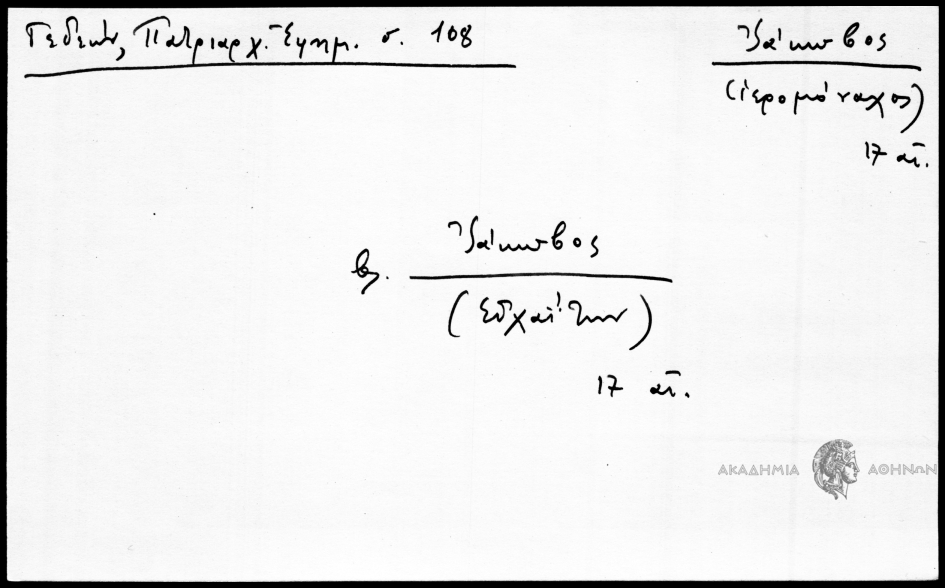 Γεδεών, Πατριαρχ. Ἐφημ. σ. 108
Ἰάκωβος
(ἱερομόναχος)
17 αἰ.
βλ. Ἰάκωβος
(Εὐχαΐτων)
17 αἰ.
ΑΚΑΔΗΜΙΑ ΑΘΗΝΩΝ